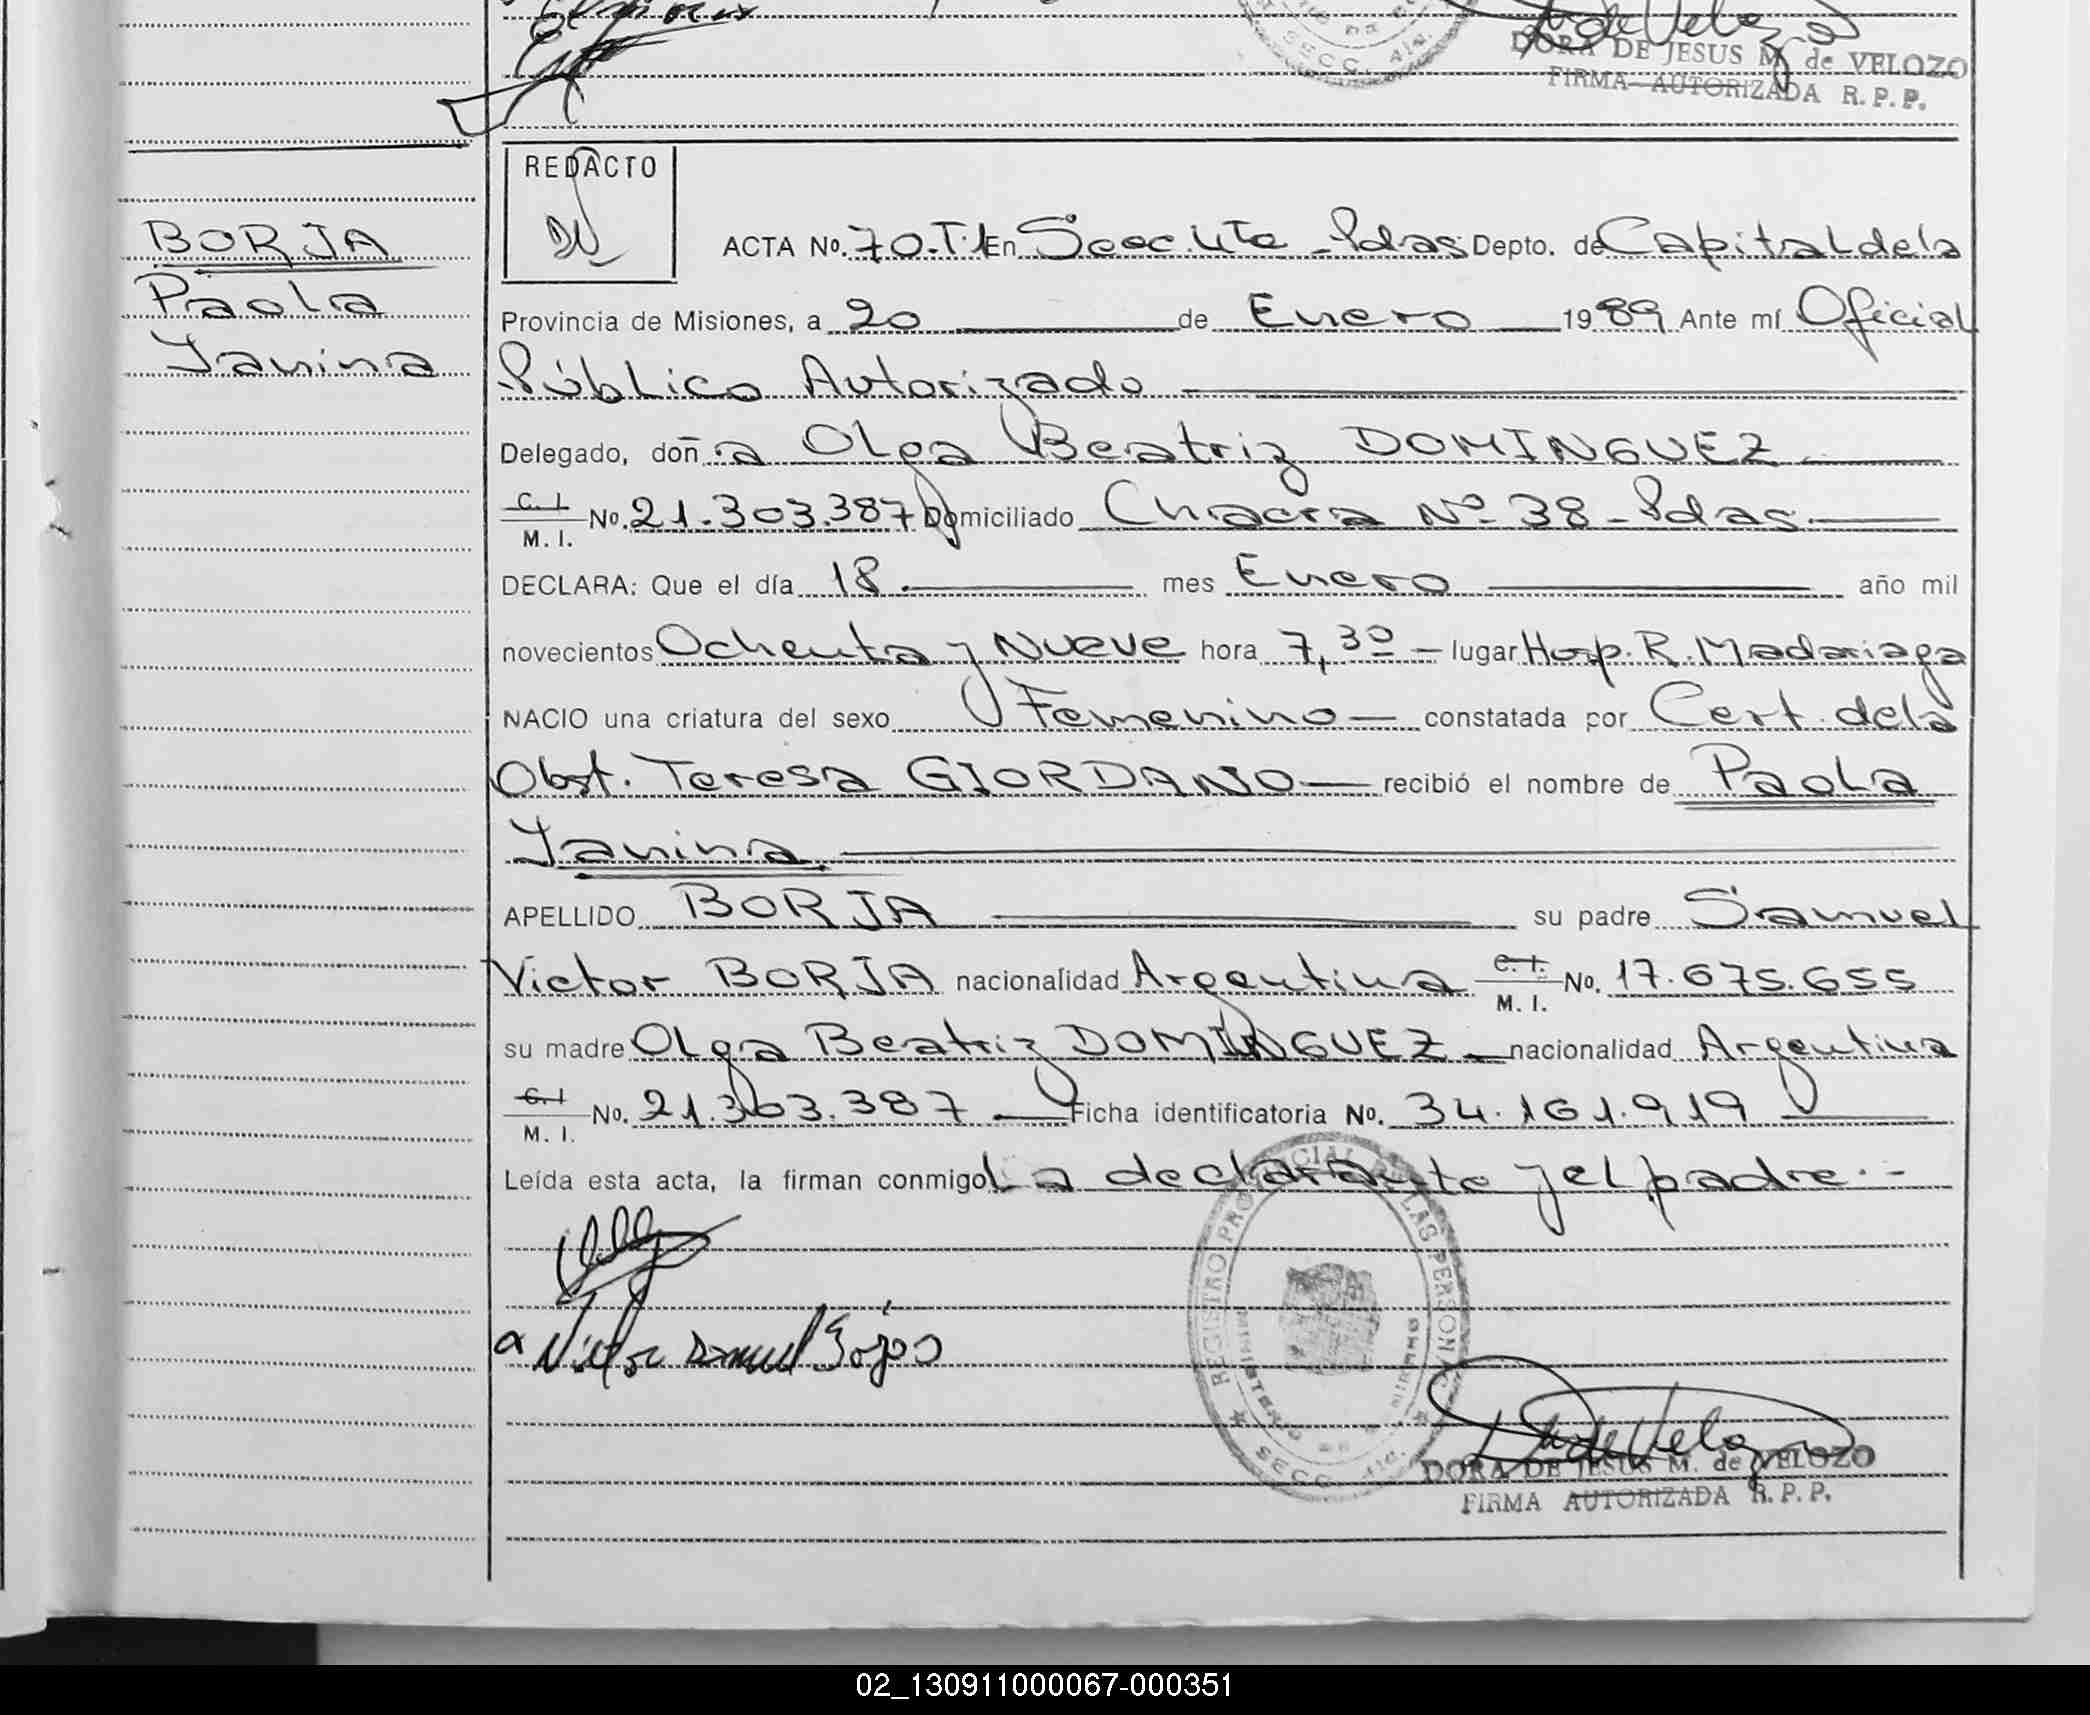 DORA DE JESUS M. de VELOZO
FIRMA AUTORIZADA R. P. P.
BORJA
Paola
Yanina
REDACTO
ACTA No. 70-T.1 En Secc. Pdas Depto. de Capital de la
Provincia de Misiones, a 20 de Enero 1989 Ante mí Oficial
Público Autorizado
Delegado, doña Olga Beatriz DOMINGUEZ
C. I. M. I. No. 21.303.387 Domiciliado Chacra Nº 38 - Pdas.
DECLARA: Que el día 18 mes Enero año mil
novecientos Ochenta y Nueve hora 7,30 lugar Hosp. R. Madariaga
NACIO una criatura del sexo Femenino constatada por Cert. de la
Obst. Teresa GIORDANO recibió el nombre de Paola
Yanina
APELLIDO BORJA su padre Samuel
Victor BORJA nacionalidad Argentina C. I. M. I. No. 17.675.655
su madre Olga Beatriz DOMINGUEZ nacionalidad Argentina
C. I. M. I. No. 21.303.387 Ficha identificatoria No. 34.161.919
Leída esta acta, la firman conmigo La declarante y el padre.-
REGISTRO PROVINCIAL DE LAS PERSONAS
MINISTERIO DE GOBIERNO
SECC.
DORA DE JESUS M. de VELOZO
FIRMA AUTORIZADA R. P. P.
02_130911000067-000351